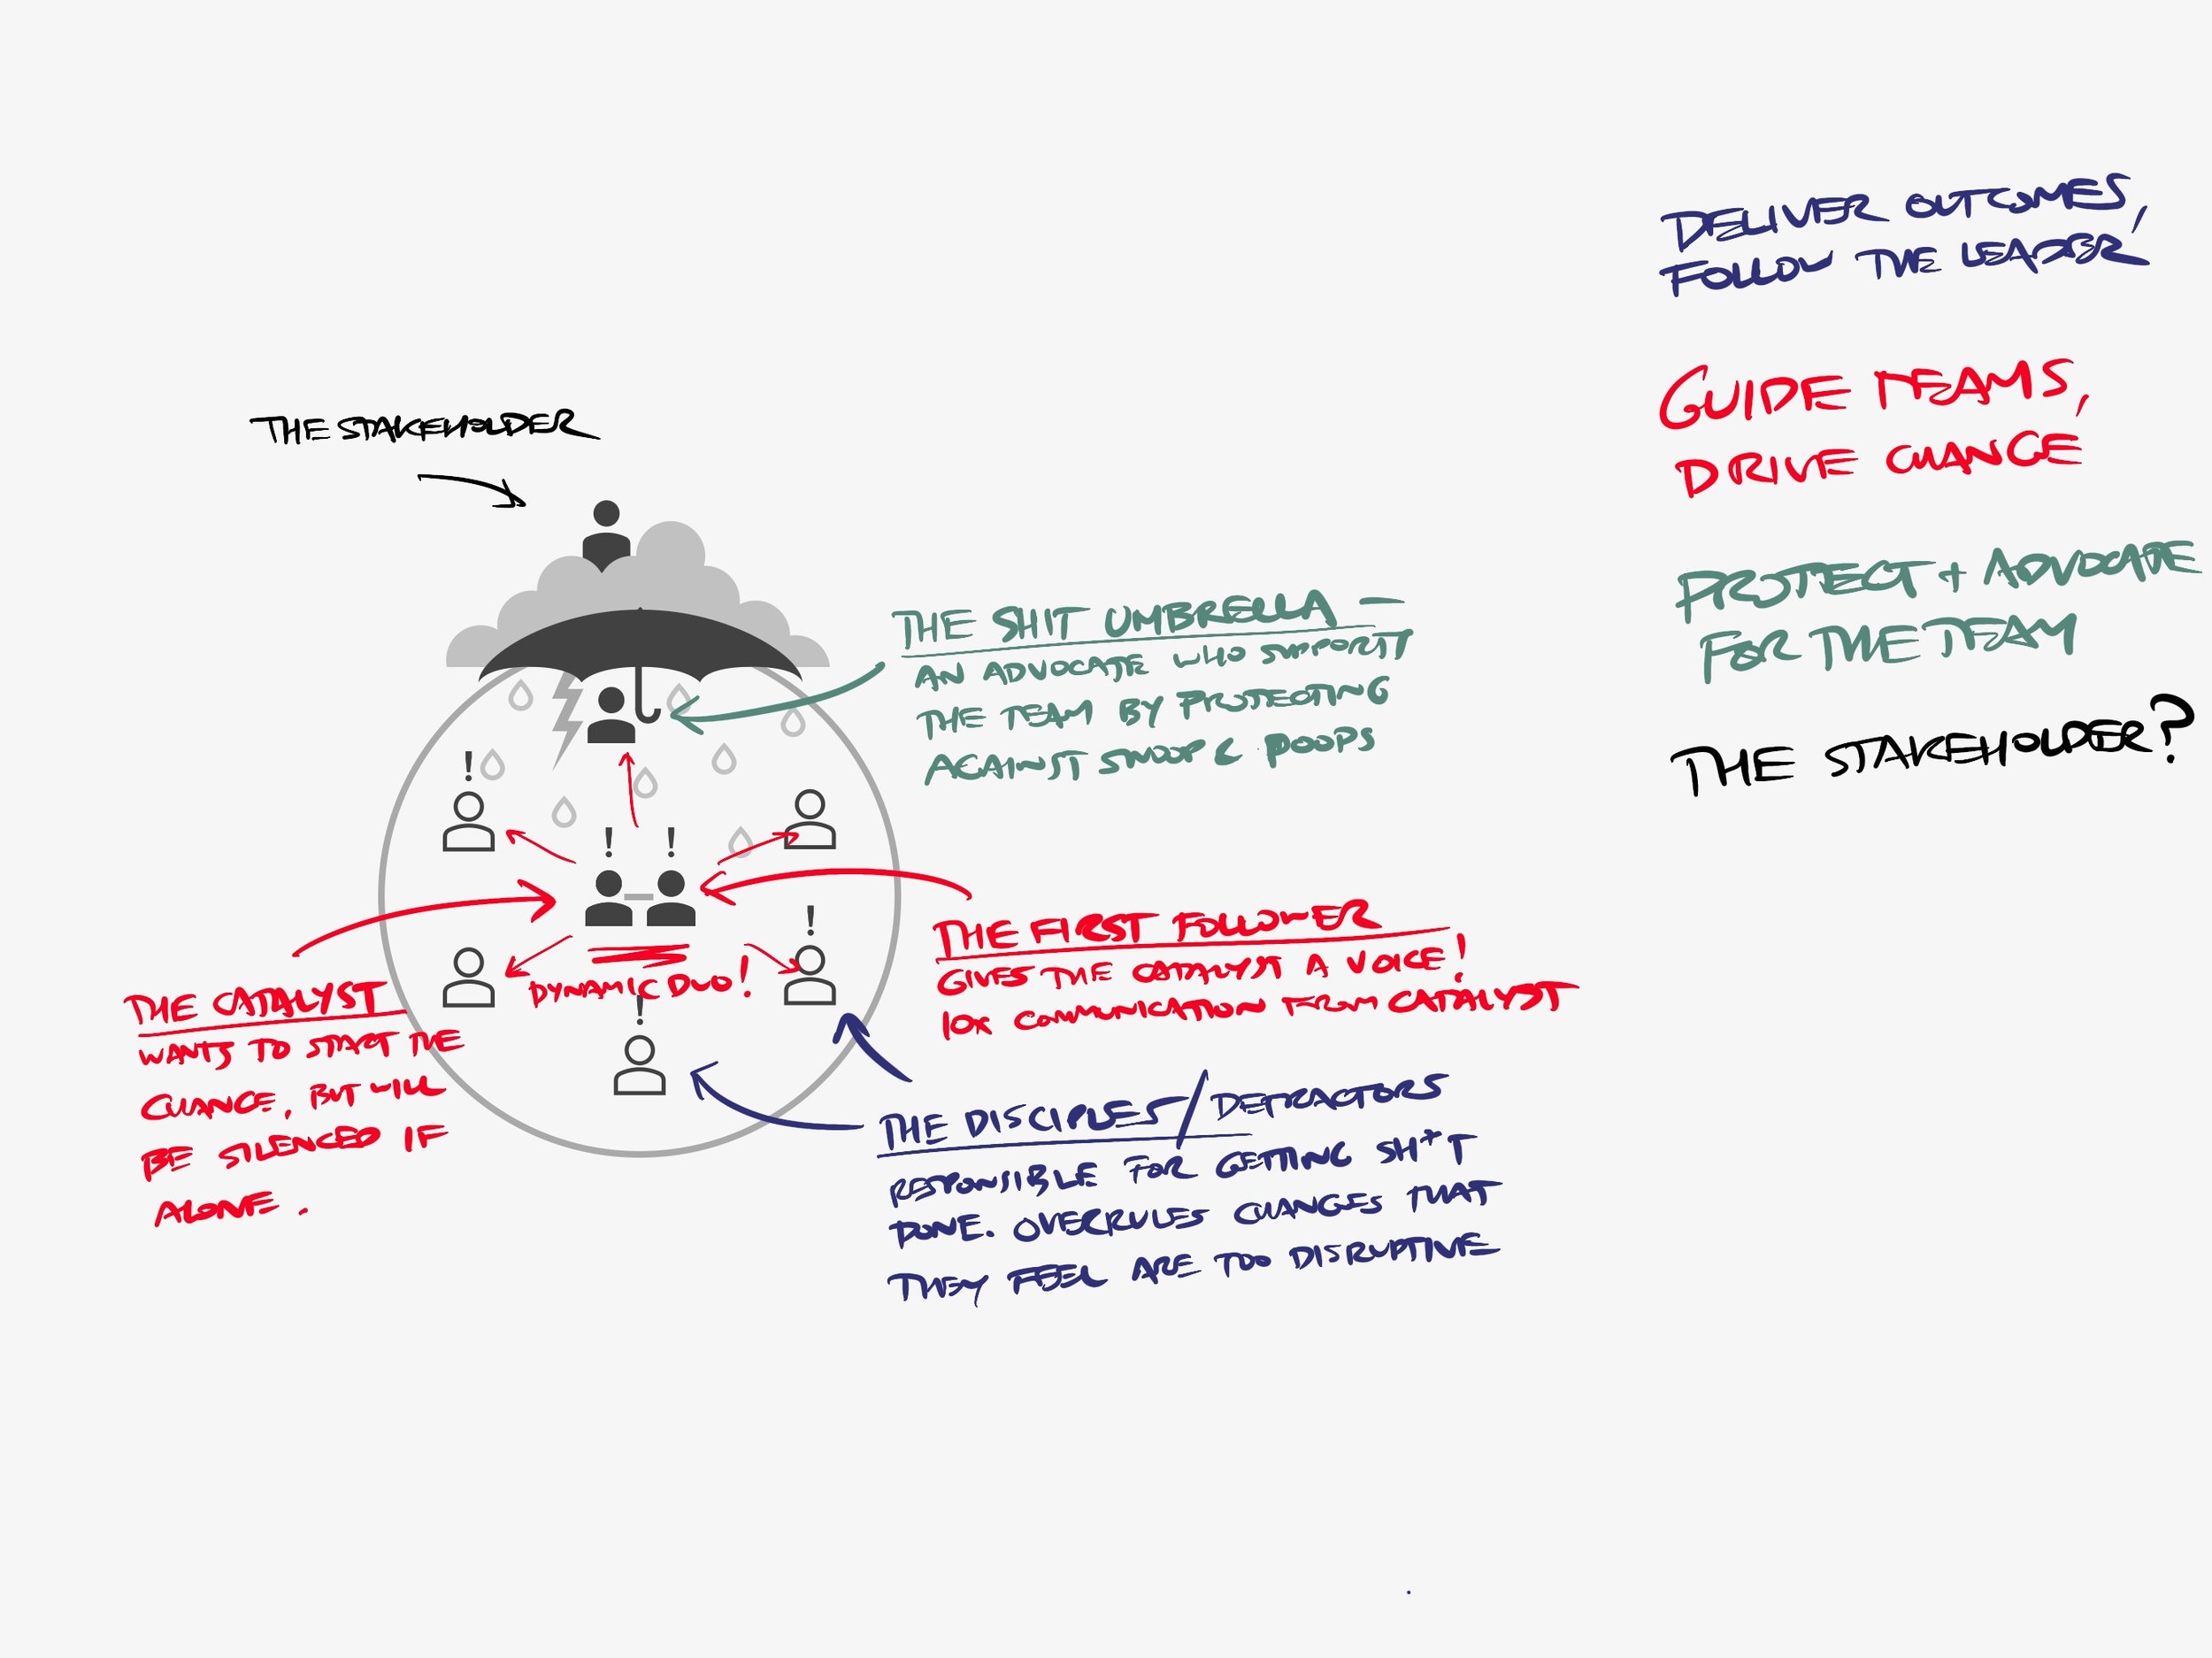 DELIVER OUTCOMES,
FOLLOW THE LEADER
GUIDE TEAMS,
DRIVE CHANGE
PROTECT + ADVOCATE
FOR THE TEAM
THE STAKEHOLDER?
THE STAKEHOLDER
THE SHIT UMBRELLA —
AN ADVOCATE WHO SUPPORT
THE TEAM BY PROTECTING
AGAINST SWOOP & POOPS
!
! !
!
THE FIRST FOLLOWER
GIVES THE CATALYST A VOICE!
10X COMMUNICATION FROM CATALYST
DYNAMIC DUO!
!
THE CATALYST
WANTS TO START THE
CHANGE, BUT WILL
BE SILENCED IF
ALONE.
THE DISCIPLES/DETRACTORS
RESPONSIBLE FOR GETTING SH*T
DONE. OVERRULES CHANGES THAT
THEY FEEL ARE TOO DISRUPTIVE